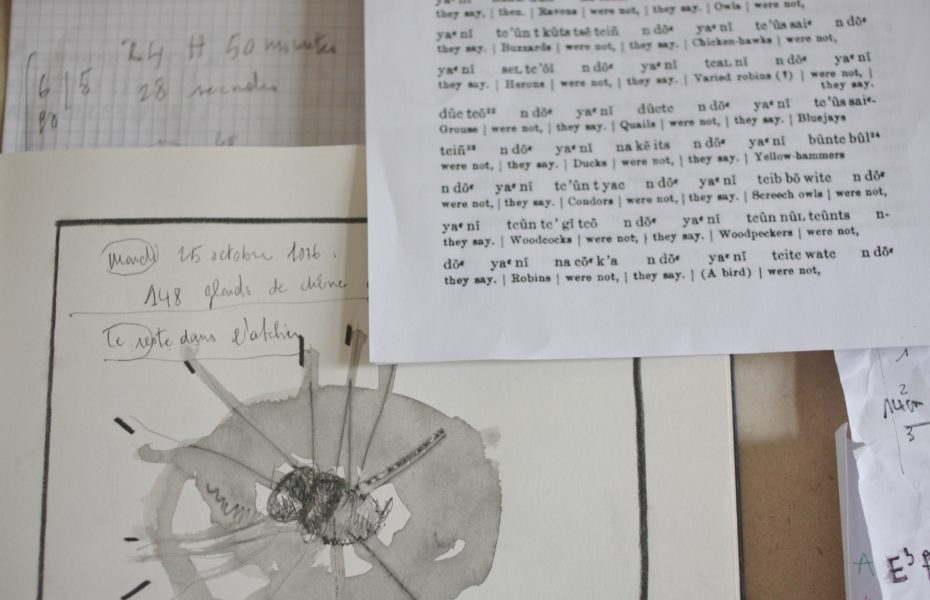 24 H 50 minutes
6 | 5
28 secondes
90
they say, | then. | Ravens | were not, | they say. | Owls | were not,
yaᵋ nī te'ûn t kûts tsē teiñ n dōᵋ yaᵋ nī te'ûs saiᵋ n dōᵋ
they say. | Buzzards | were not, | they say. | Chicken-hawks | were not,
yaᵋ nī seʟ te'ōī n dōᵋ yaᵋ nī teaʟ nī n dōᵋ yaᵋ nī
they say. | Herons | were not, | they say. | Varied robins (?) | were not, |
they say.
dûc teō²² n dōᵋ yaᵋ nī dûcte n dōᵋ yaᵋ nī te'ûs saiᵋ-
Grouse | were not, | they say. | Quails | were not, | they say. | Bluejays
teiñ²³ n dōᵋ yaᵋ nī na kē its n dōᵋ yaᵋ nī bûnte bûl²⁴
were not, | they say. | Ducks | were not, | they say. | Yellow-hammers
n dōᵋ yaᵋ nī te'ûn t yac n dōᵋ yaᵋ nī teib bō wite n dōᵋ
were not, | they say. | Condors | were not, | they say. | Screech owls | were not,
yaᵋ nī teûn te' gī teō n dōᵋ yaᵋ nī teûn nûʟ teûnts n-
they say. | Woodcocks | were not, | they say. | Woodpeckers | were not,
dōᵋ yaᵋ nī na cōᵋ k'a n dōᵋ yaᵋ nī teite wate n dōᵋ
they say. | Robins | were not, | they say. | (A bird) | were not,
mardi 25 octobre 2016.
148 glands de chêne
Le reste dans l'atelier
1
2
14cm
3
A
E³